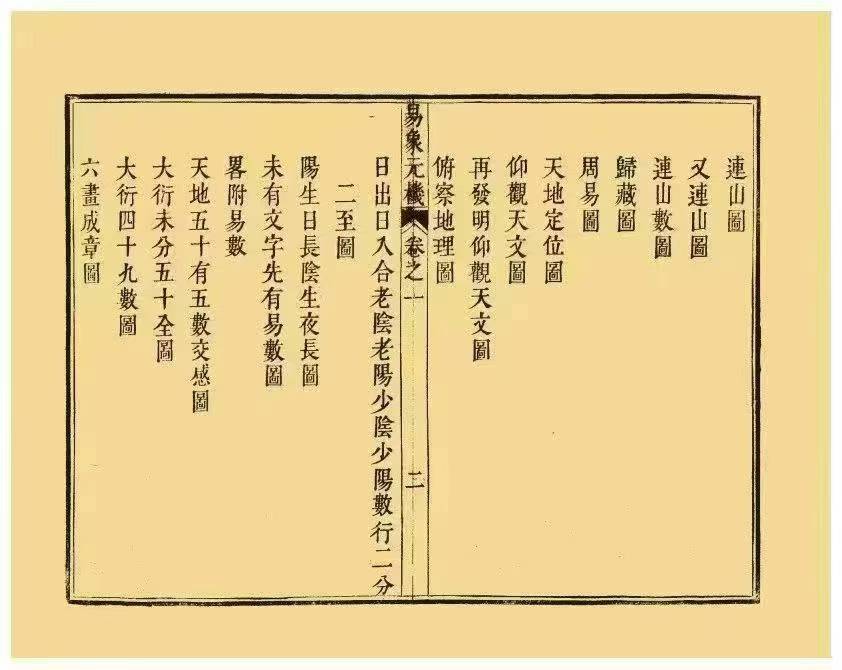 連山圖
又連山圖
連山數圖
歸藏圖
周易圖
天地定位圖
仰觀天文圖
再發明仰觀天文圖
俯察地理圖
易象元機
卷之一
二
日出日入合老陰老陽少陰少陽數行二分
二至圖
陽生日長陰生夜長圖
未有文字先有易數圖
畧附易數
天地五十有五數交感圖
大衍未分五十全圖
大衍四十九數圖
六畫成章圖